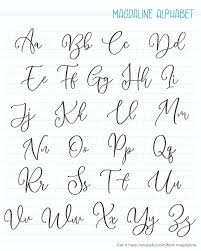 MAGDALINE ALPHABET
Aa Bb Cc Dd
Ee Ff Gg Hh Ii
Jj Kk Ll Mm
Nn Oo Pp Qq
Rr Ss Tt Uu
Vv Ww Xx Yy Zz